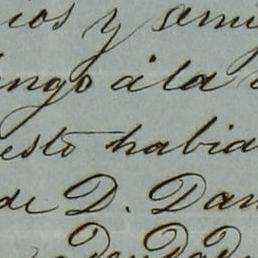 ios y ami
ingo á la
esto habia
de D. Dam